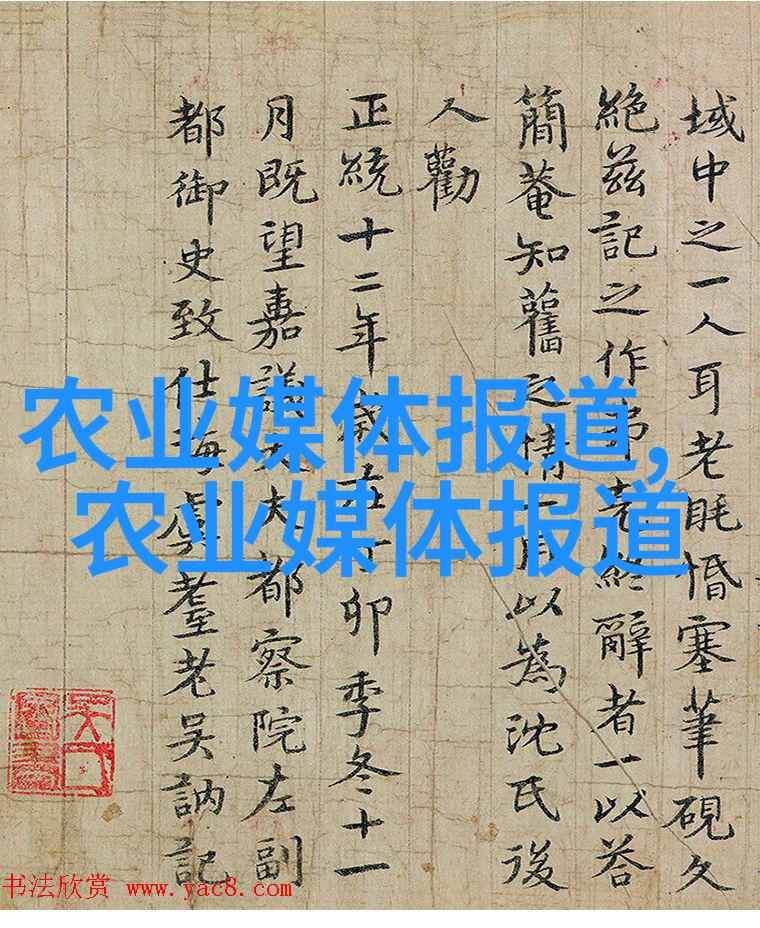 域中之一人耳老眊惛塞筆硯久
絕茲記之作弗克終辭者一以荅
簡菴知舊之情一用以為沈氏後
人勸
正統十二年歲在丁卯季冬十一
月既望嘉議大夫都察院左副
都御史致仕海虞耋老吳訥記
农业媒体报道,
农业媒体报道
书法欣赏 www.yac8.com